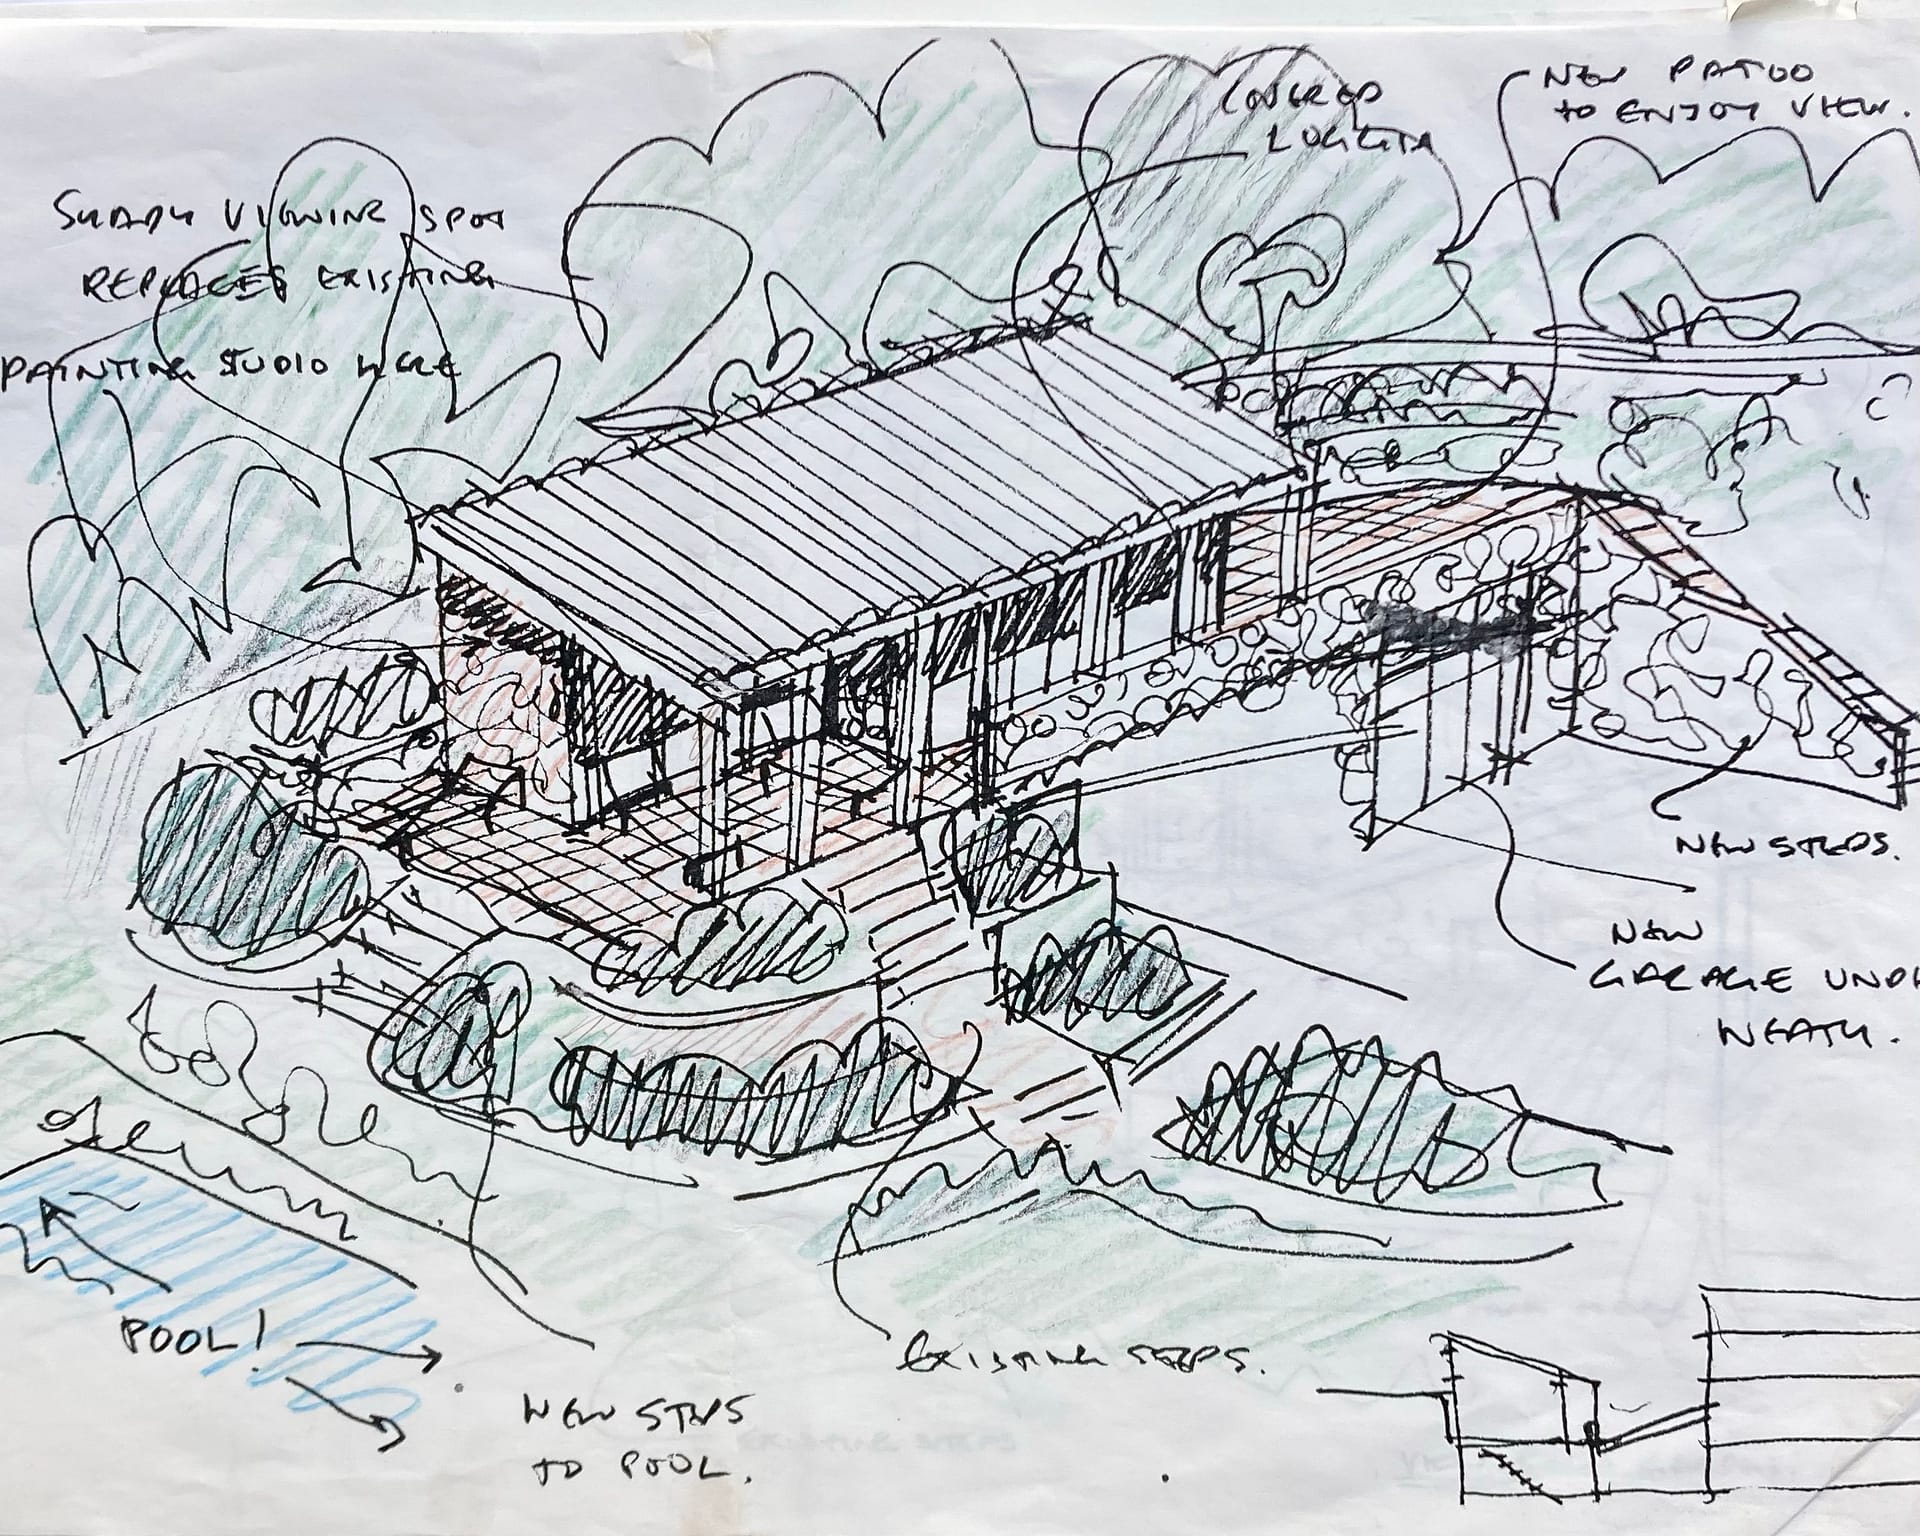 COVERED
LOGGIA
NEW PATIO
TO ENJOY VIEW.
SHADY VIEWING SPOT
REPLACES EXISTING
PAINTING STUDIO HERE
NEW STEPS.
NEW
GARAGE UND
NEATH.
POOL!
EXISTING STEPS.
NEW STEPS
TO POOL.